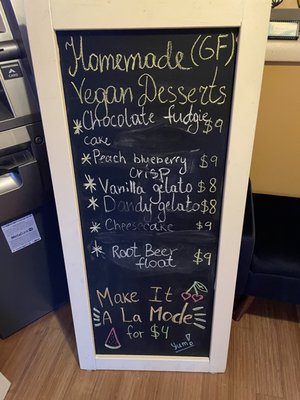 Homemade (GF)
Vegan Desserts
* Chocolate fudgie $9
cake
* Peach blueberry $9
crisp
* Vanilla gelato $8
* Dandy gelato $8
* Cheesecake $9
* Root Beer $9
float
Make It
A La Mode
for $4
Yum!